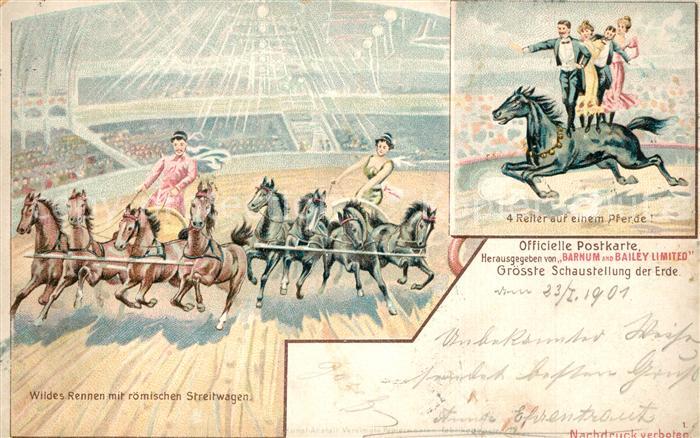 4 Reiter auf einem Pferde!
Officielle Postkarte,
Herausgegeben von „BARNUM AND BAILEY LIMITED"
Grösste Schaustellung der Erde.
23/I. 1901
Unbekannter Weise
sendet besten Gruß
Anna Ehrentraut
Wildes Rennen mit römischen Streitwagen.
1.
Nachdruck verboten